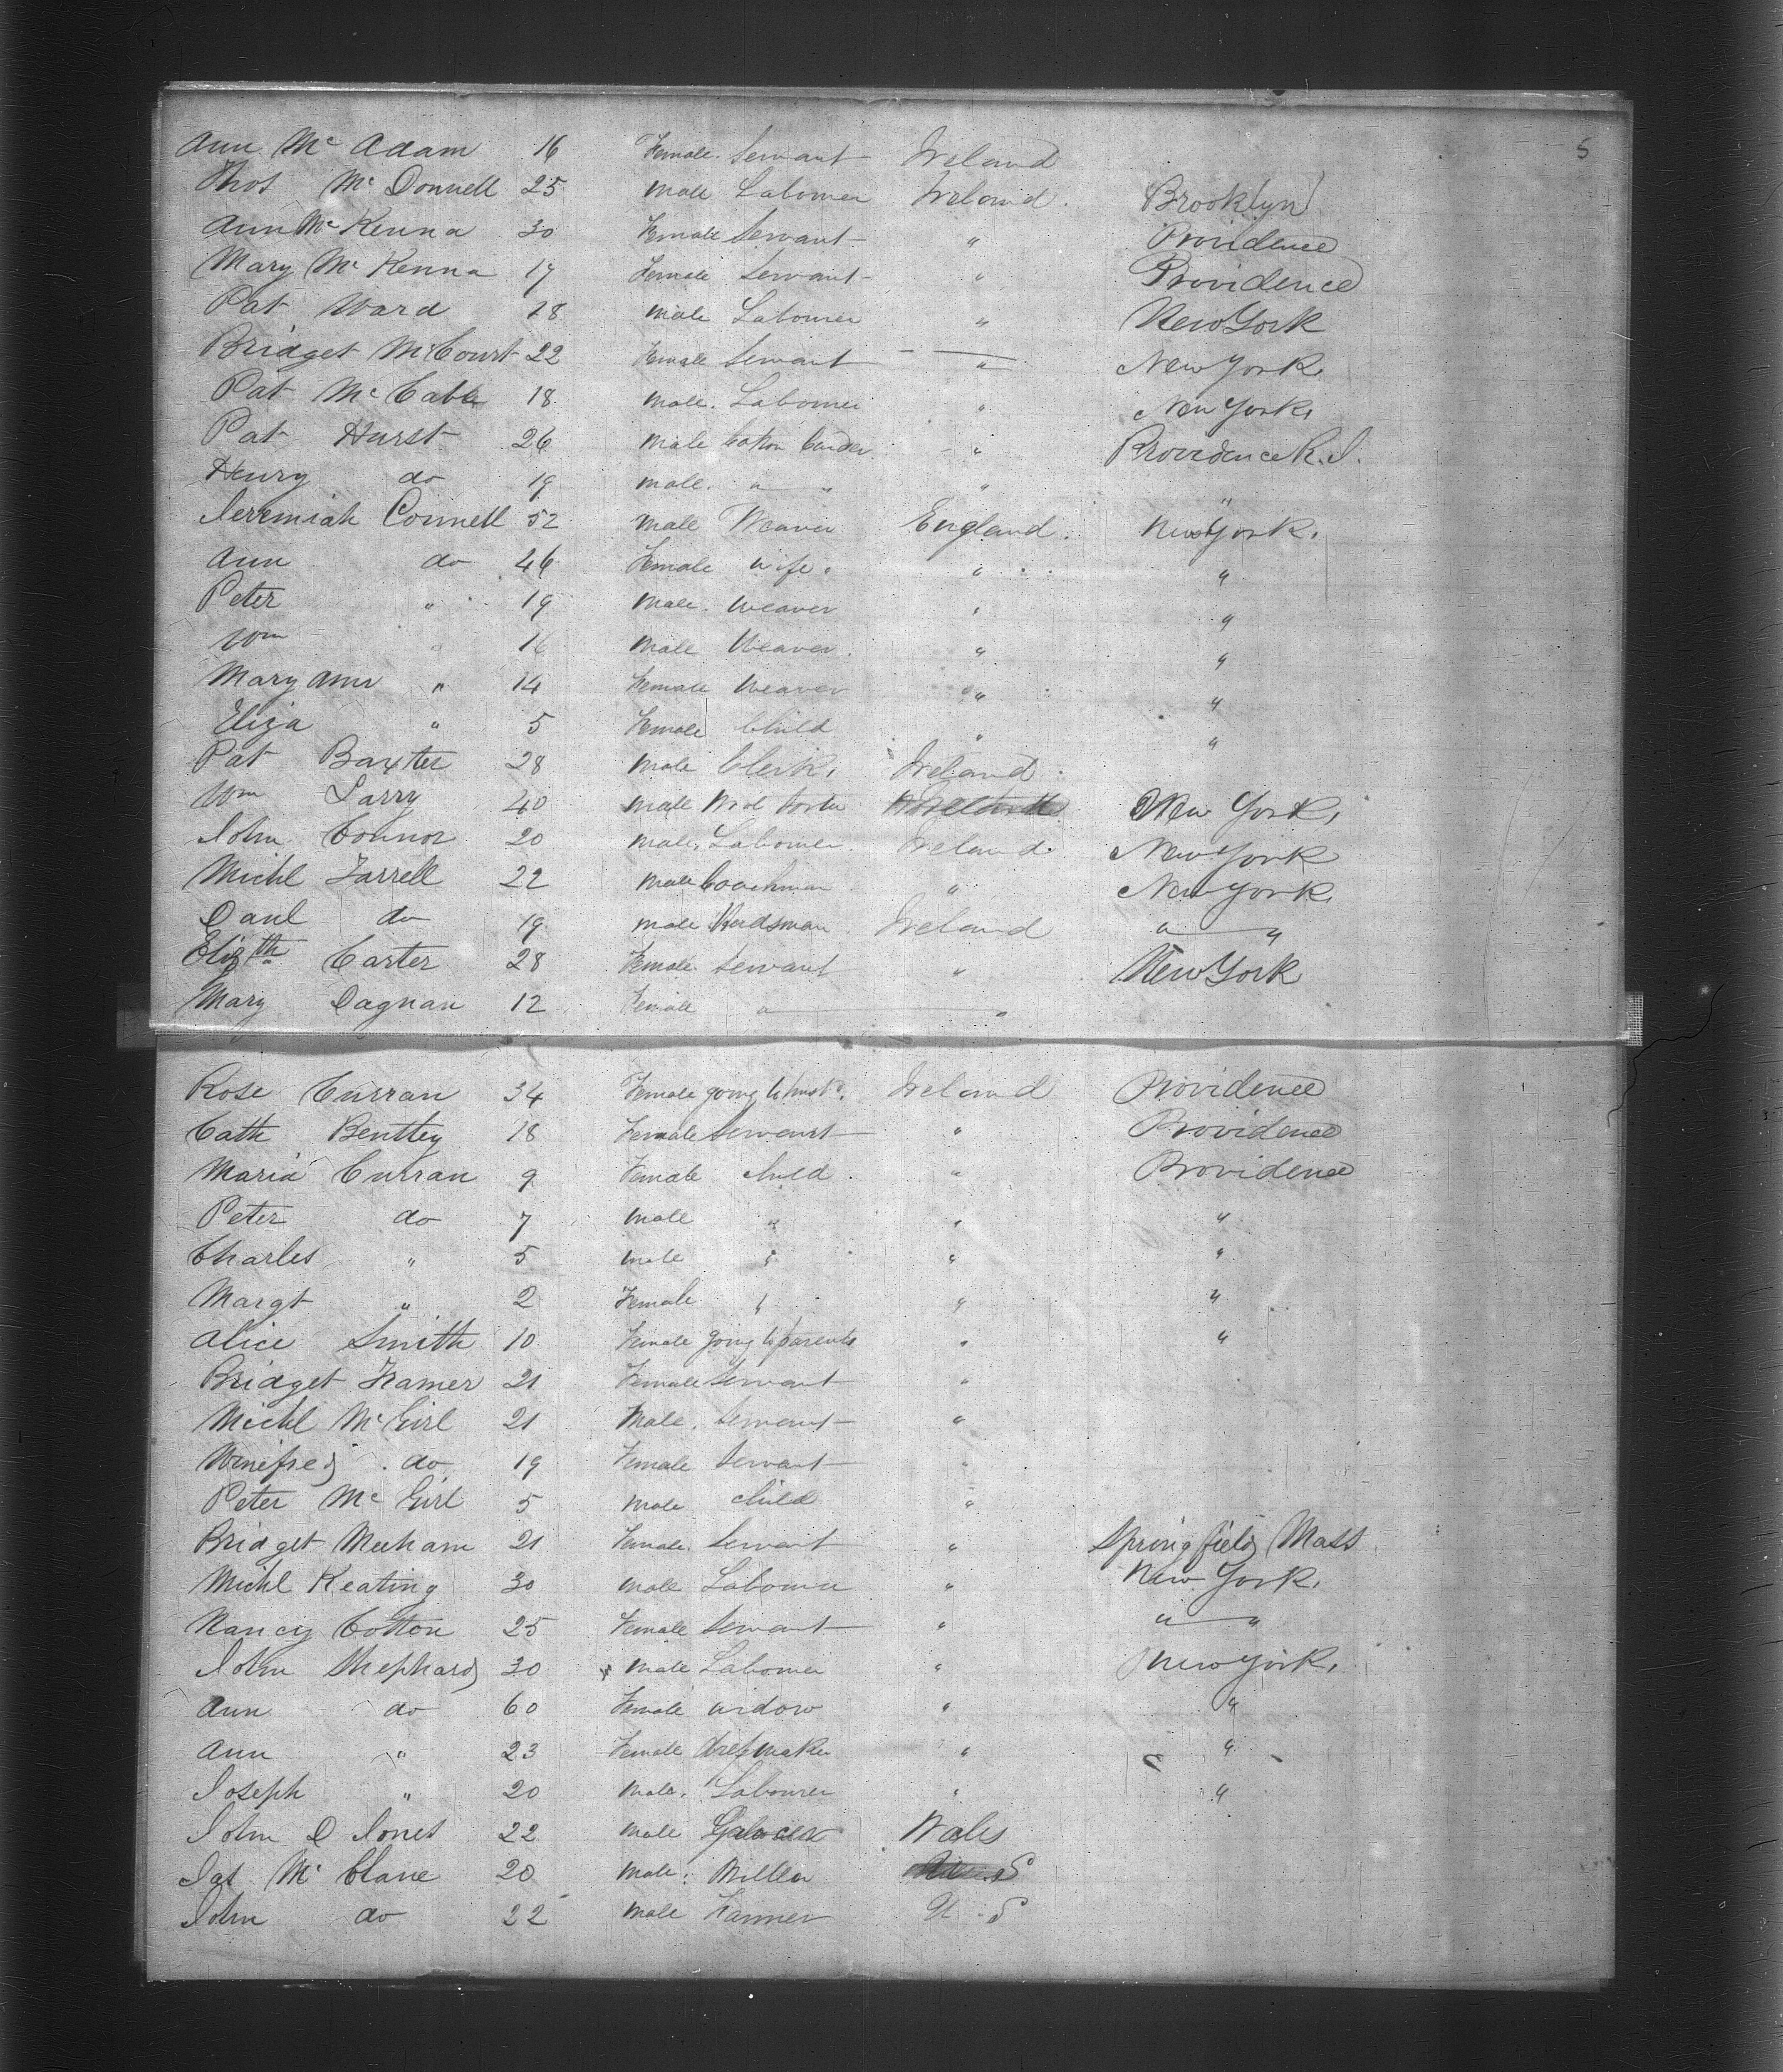 5
Ann Mc Adam 16 Female Servant Ireland
Thos Mc Donnell 25 male Labourer Ireland. Brooklyn
Ann Mc Kenna 30 Female Servant " Providence
Mary Mc Kenna 17 Female Servant " Providence
Pat Ward 28 male Labourer " New York
Bridget McCourt 22 Female Servant " New York
Pat Mc Cabe 18 male. Labourer " New York,
Pat Hurst 26 male Cotton Carder. " Providence R.I.
Henry do 19 male. " " " "
Jeremiah Connell 52 male Weaver England. New York.
Ann do 46 Female wife. " "
Peter " 19 male. Weaver " "
Wm " 16 male Weaver. " "
Mary Ann " 14 Female Weaver " "
Eliza " 5 Female Child " "
Pat Baxter 28 male Clerk, Ireland.
Wm Larry 40 male New York,
John Connor 20 male. Labourer. Ireland. New York
Michl Farrell 22 male Coachman " New York,
Danl do 19 male Herdsman. Ireland " "
Elizth Carter 28 Female Servant " New York
Mary Dagnan 12 Female " "
Rose Curran 34 Female going to husbd. Ireland Providence
Cath Bentley 18 Female Servant " Providence
Maria Curran 9 Female child. " Providence
Peter do 7 male " " "
Charles " 5 male " " "
Margt " 2 Female " " "
Alice Smith 10 Female going to parents " "
Bridget Framer 21 Female Servant "
Michl Mc Girl 21 Male. Servant "
Winifred do 19 Female Servant "
Peter Mc Girl 5 male child "
Bridget Meeham 21 Female. Servant " Springfield Mass
Michl Keating 30 male Labourer " New York,
Nancy Cotton 25 Female Servant " " "
John Shephard 30 male Labourer " New York,
Ann do 60 Female widow " "
Ann " 23 Female dressmaker " "
Joseph " 20 male. Labourer " "
John D Jones 22 male Wales
Jas Mc Clane 20 male. Miller S
John do 22 male Farmer U. S